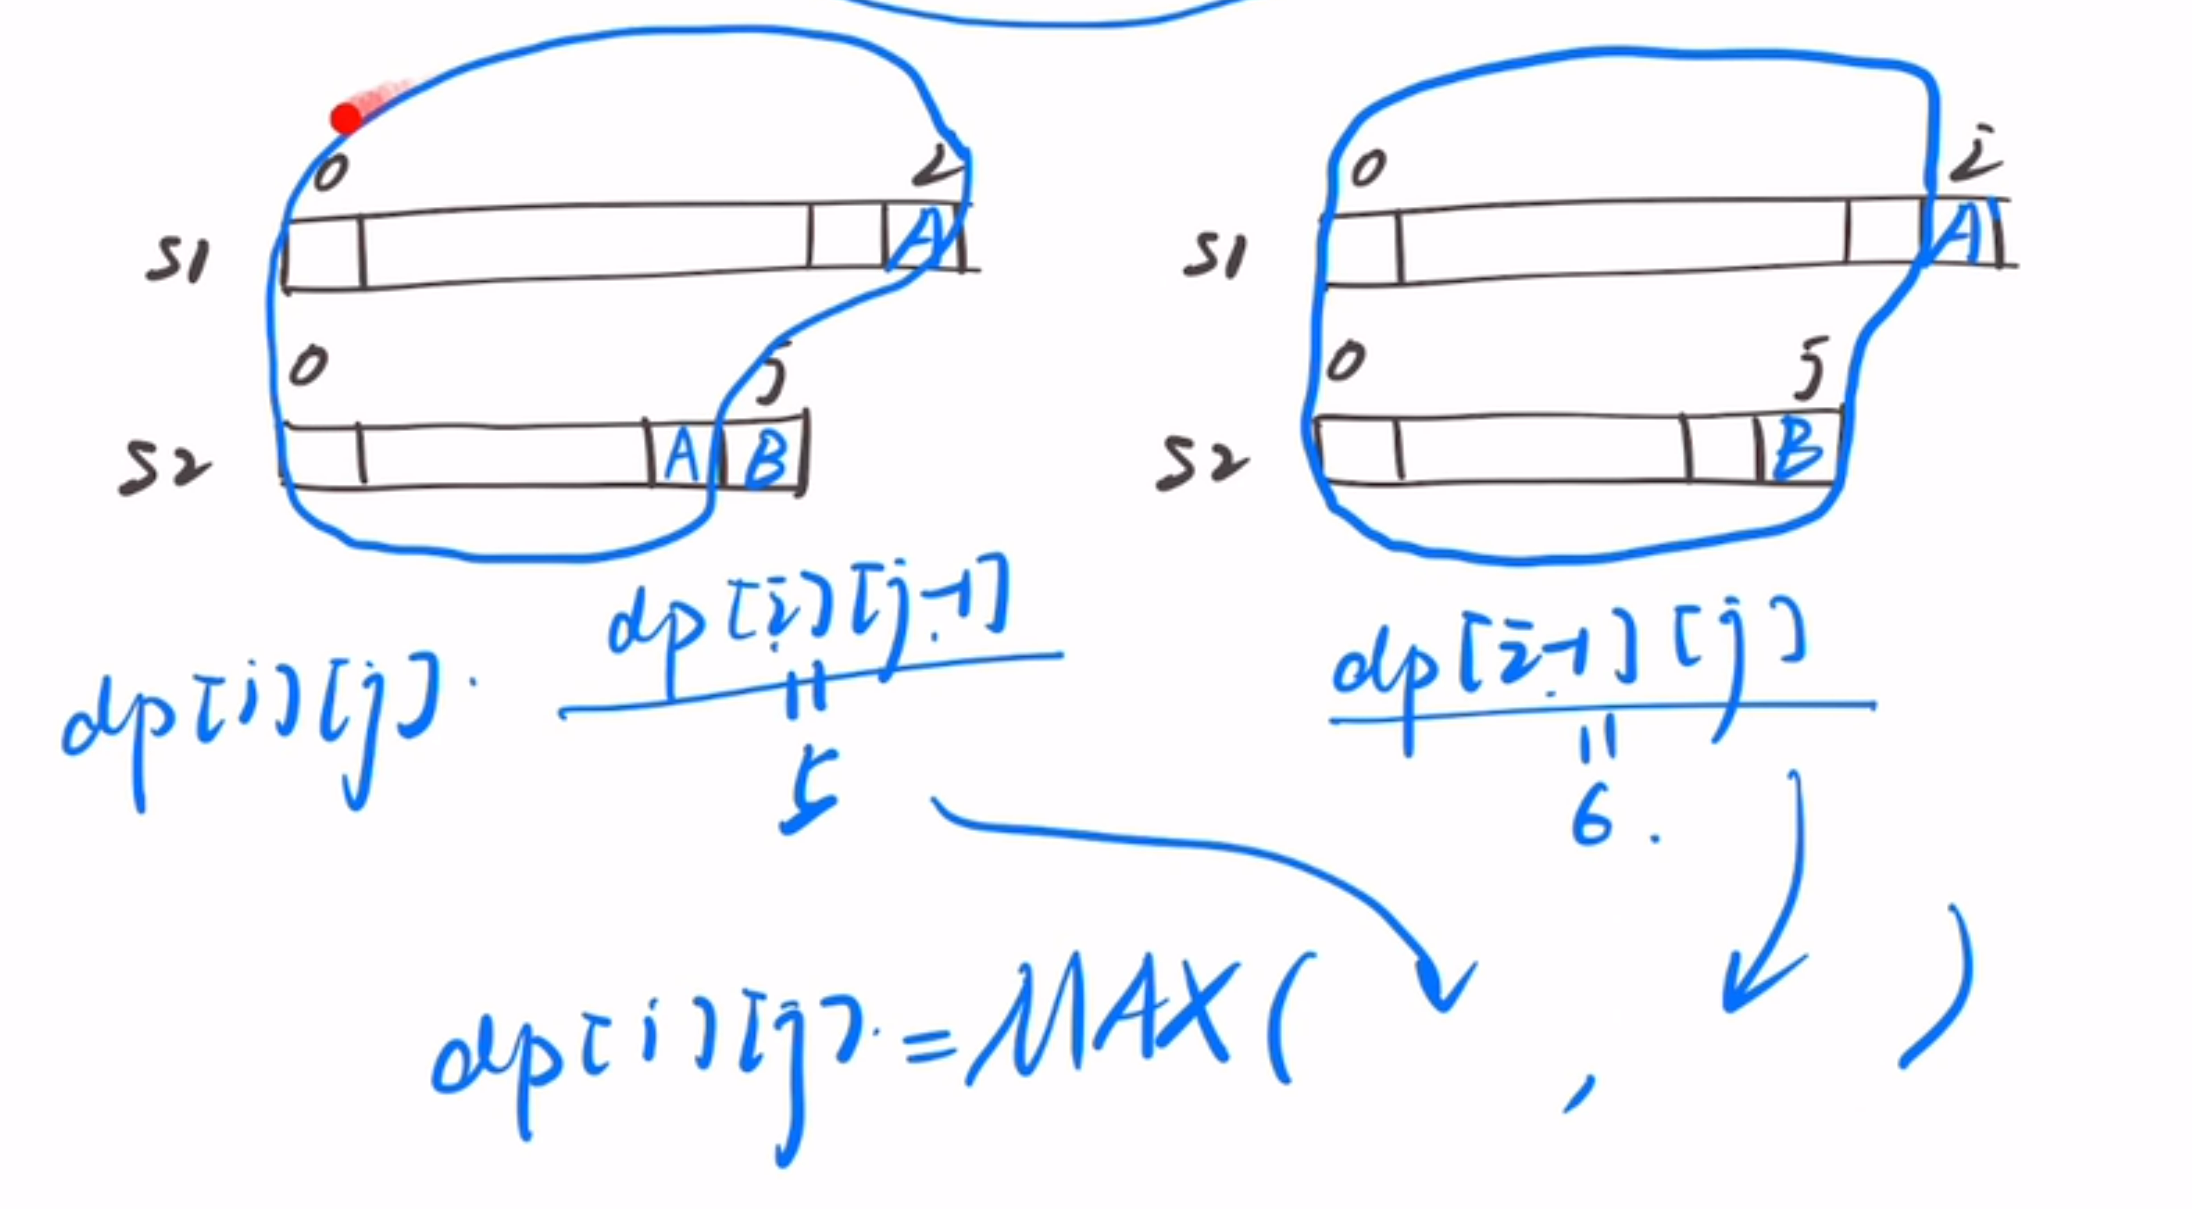 0 i 0 i
S1 A S1 A
0 j 0 j
S2 A B S2 B
dp[i][j]. dp[i][j-1] dp[i-1][j]
=
5
=
6.
dp[i][j] = MAX( , )